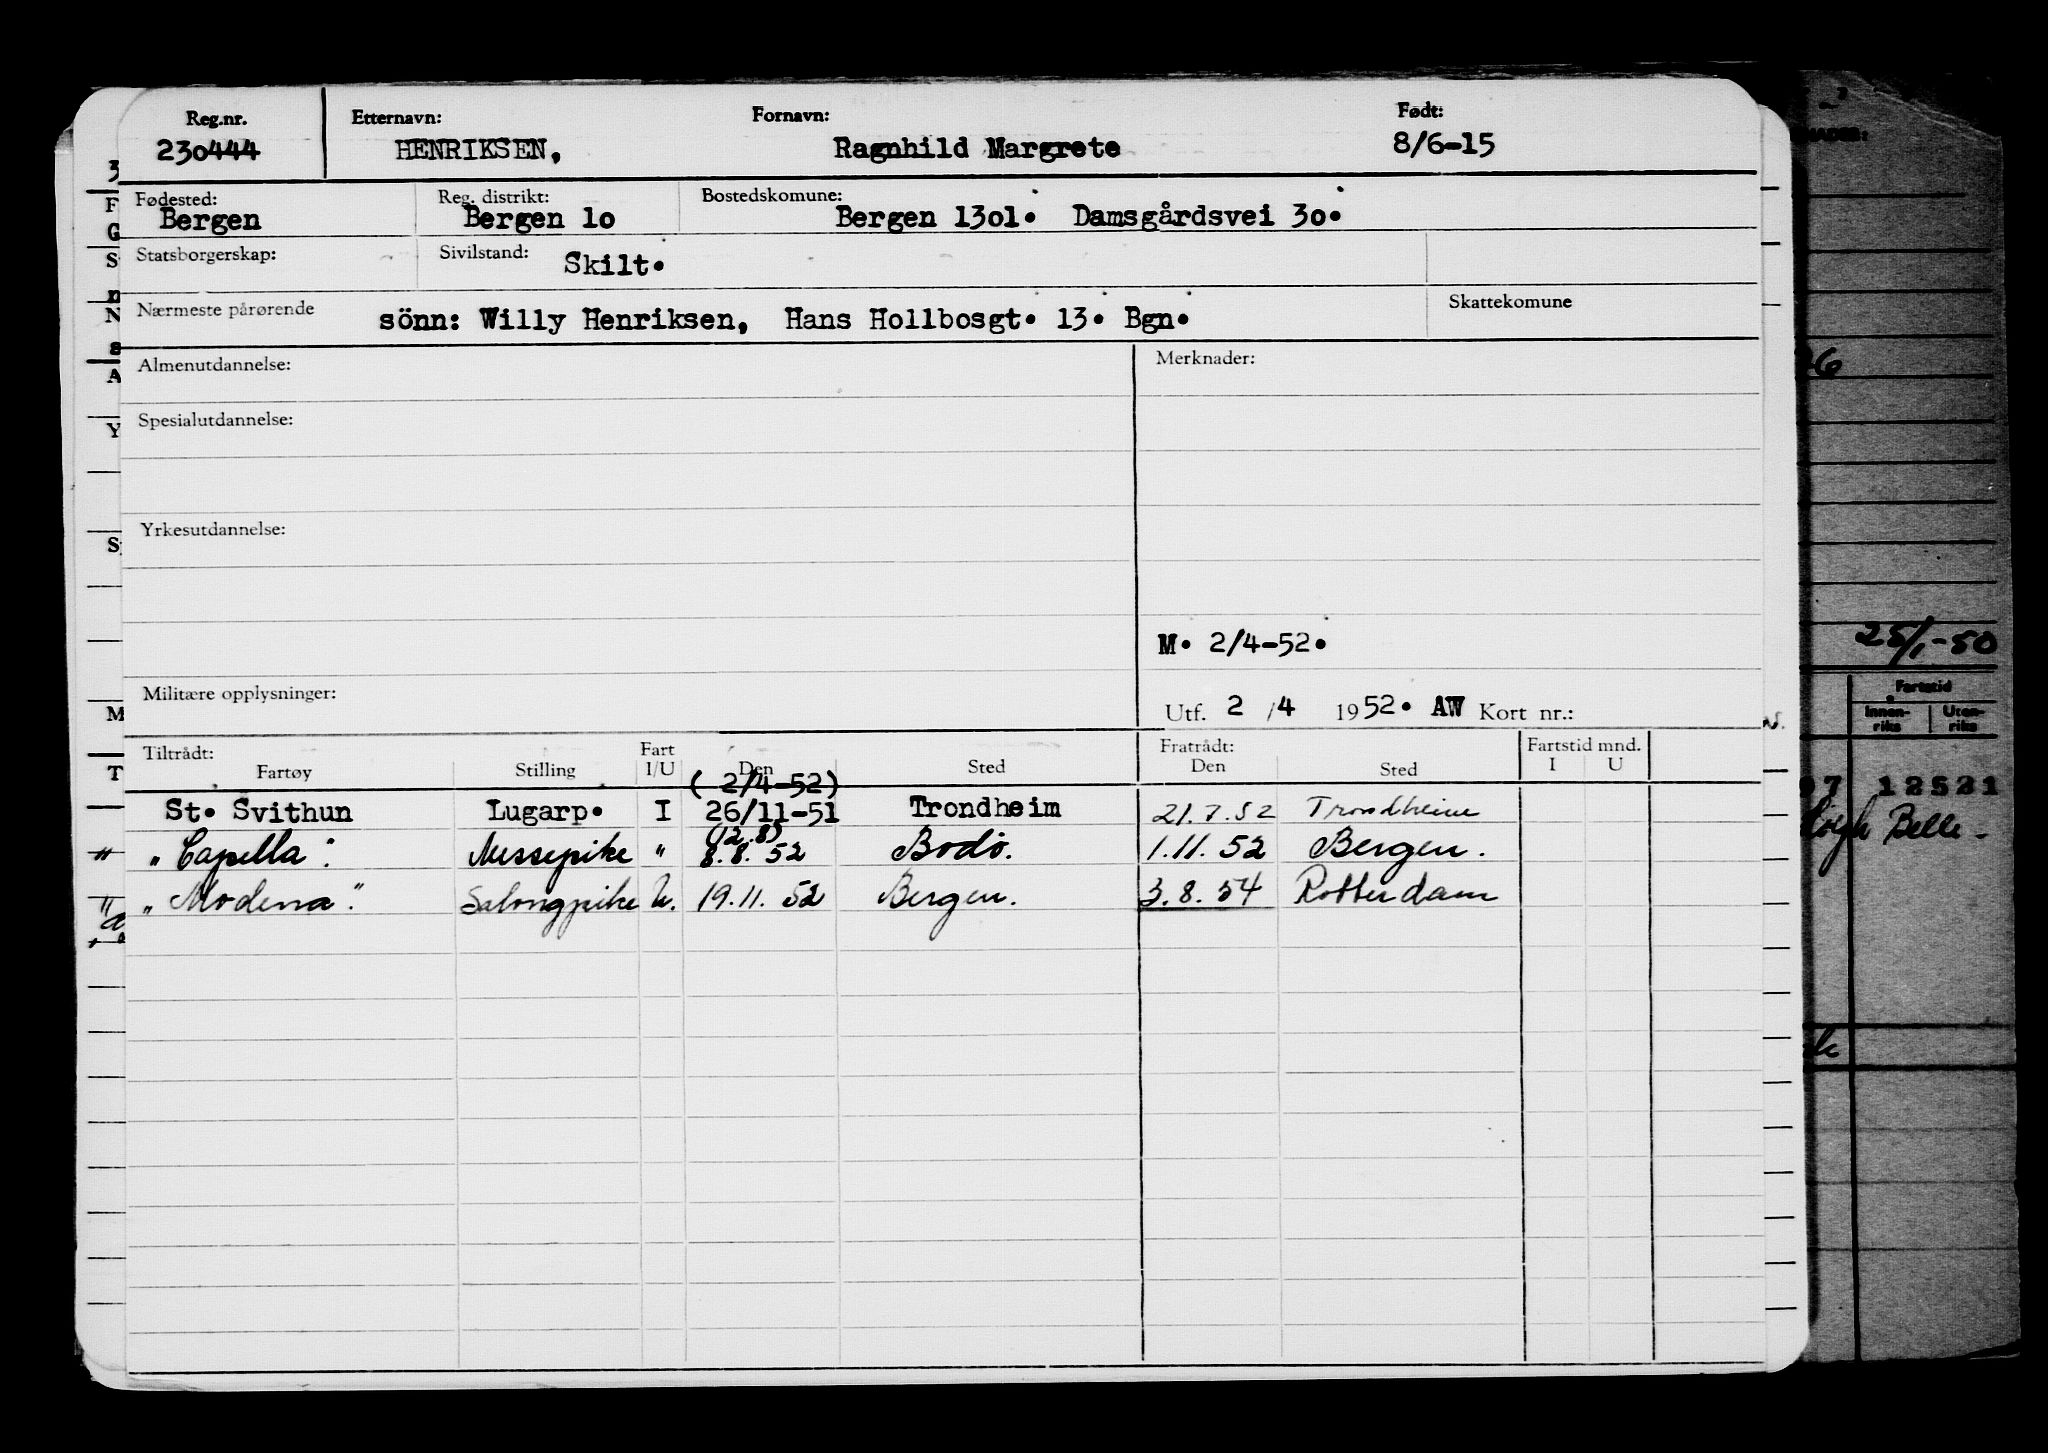 Reg.nr. Etternavn: Fornavn: Født:
230444 HENRIKSEN, Ragnhild Margrete 8/6-15
Fødested: Reg. distrikt: Bostedskomune:
Bergen Bergen 1o Bergen 13o1. Damsgårdsvei 3o.
Statsborgerskap: Sivilstand: Skilt.
Nærmeste pårørende Skattekomune
sönn: Willy Henriksen, Hans Hollbosgt. 13. Bgn.
Almenutdannelse: Merknader:
Spesialutdannelse:
Yrkesutdannelse:
M. 2/4-52.
25/1-50
Militære opplysninger: Utf. 2 /4 1952. AW Kort nr.:
Fartstid
Innen-riks Uten-riks
Tiltrådt: Fart Fratrådt: Fartstid mnd.
Fartøy Stilling I/U Den Sted Den Sted I U
(2/4-52)
St. Svithun Lugarp. I 26/11-51 Trondheim 21.7.52 Trondheim
12521
(12.8)
" "Capella". Messepike " 8.8.52 Bodö. 1.11.52 Bergen.
Belle-
" "Modena". Salongpike U. 19.11.52 Bergen. 3.8.54 Rotterdam